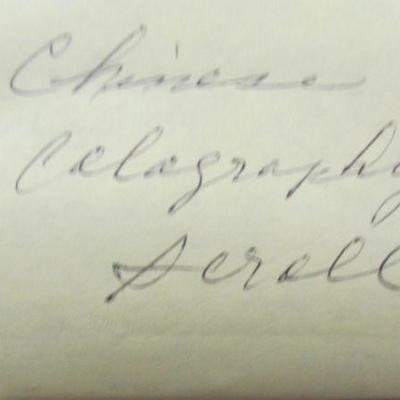 Chinese
Calography
Scroll